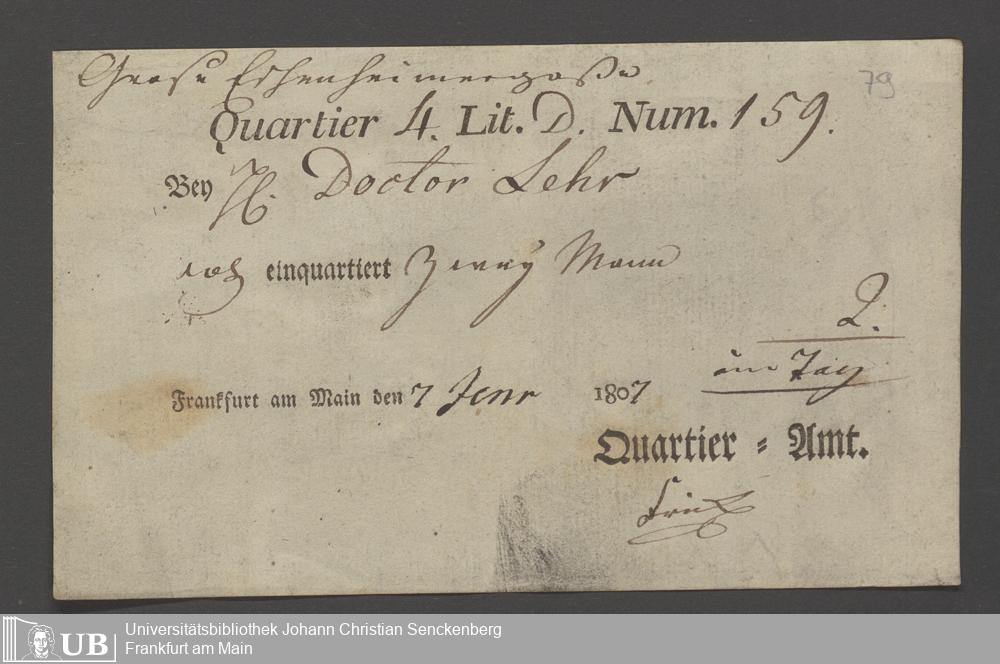 Grose Eschenheimergasse
79
Quartier 4. Lit. D. Num. 159.
Bey H. Doctor Lehr
einquartiert Zwey Mann
2.
ein Tag
Frankfurt am Main den 7 Jenr 1807
Quartier = Amt.
UB Universitätsbibliothek Johann Christian Senckenberg
Frankfurt am Main